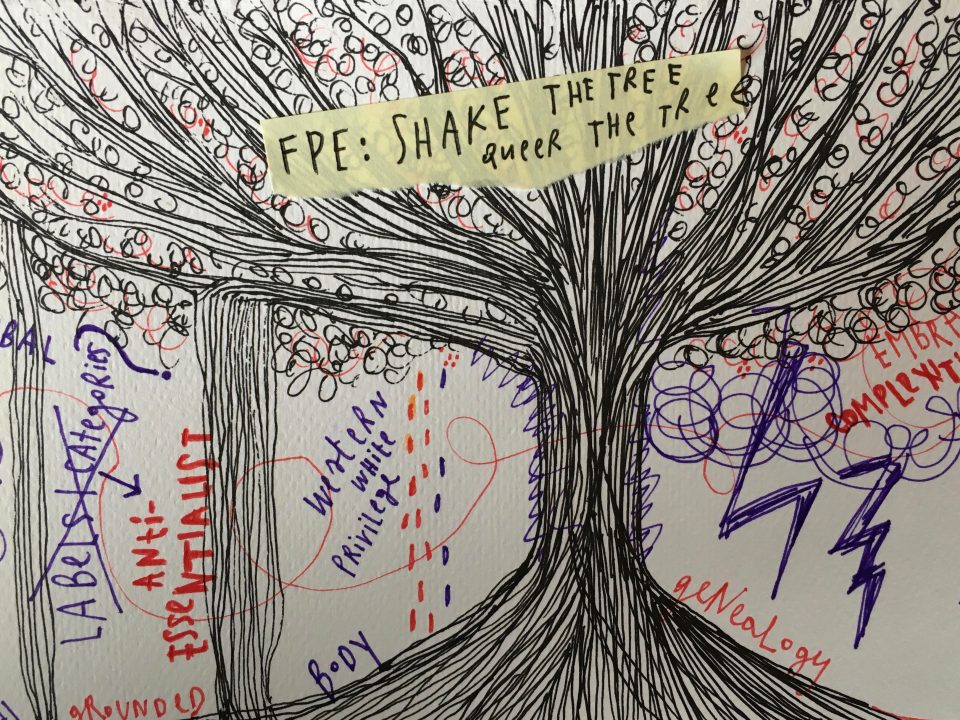 FPE: SHAKE THE TREE
QUEER THE TREE
BAL
LABELS + CATEGORIES?
ANTi-
ESSENTIALIST
GROUNDED
WESTERN
WHITE
PRIVILEGE
BODY
EMBRA
COMPLEXITI
GENEALOGY